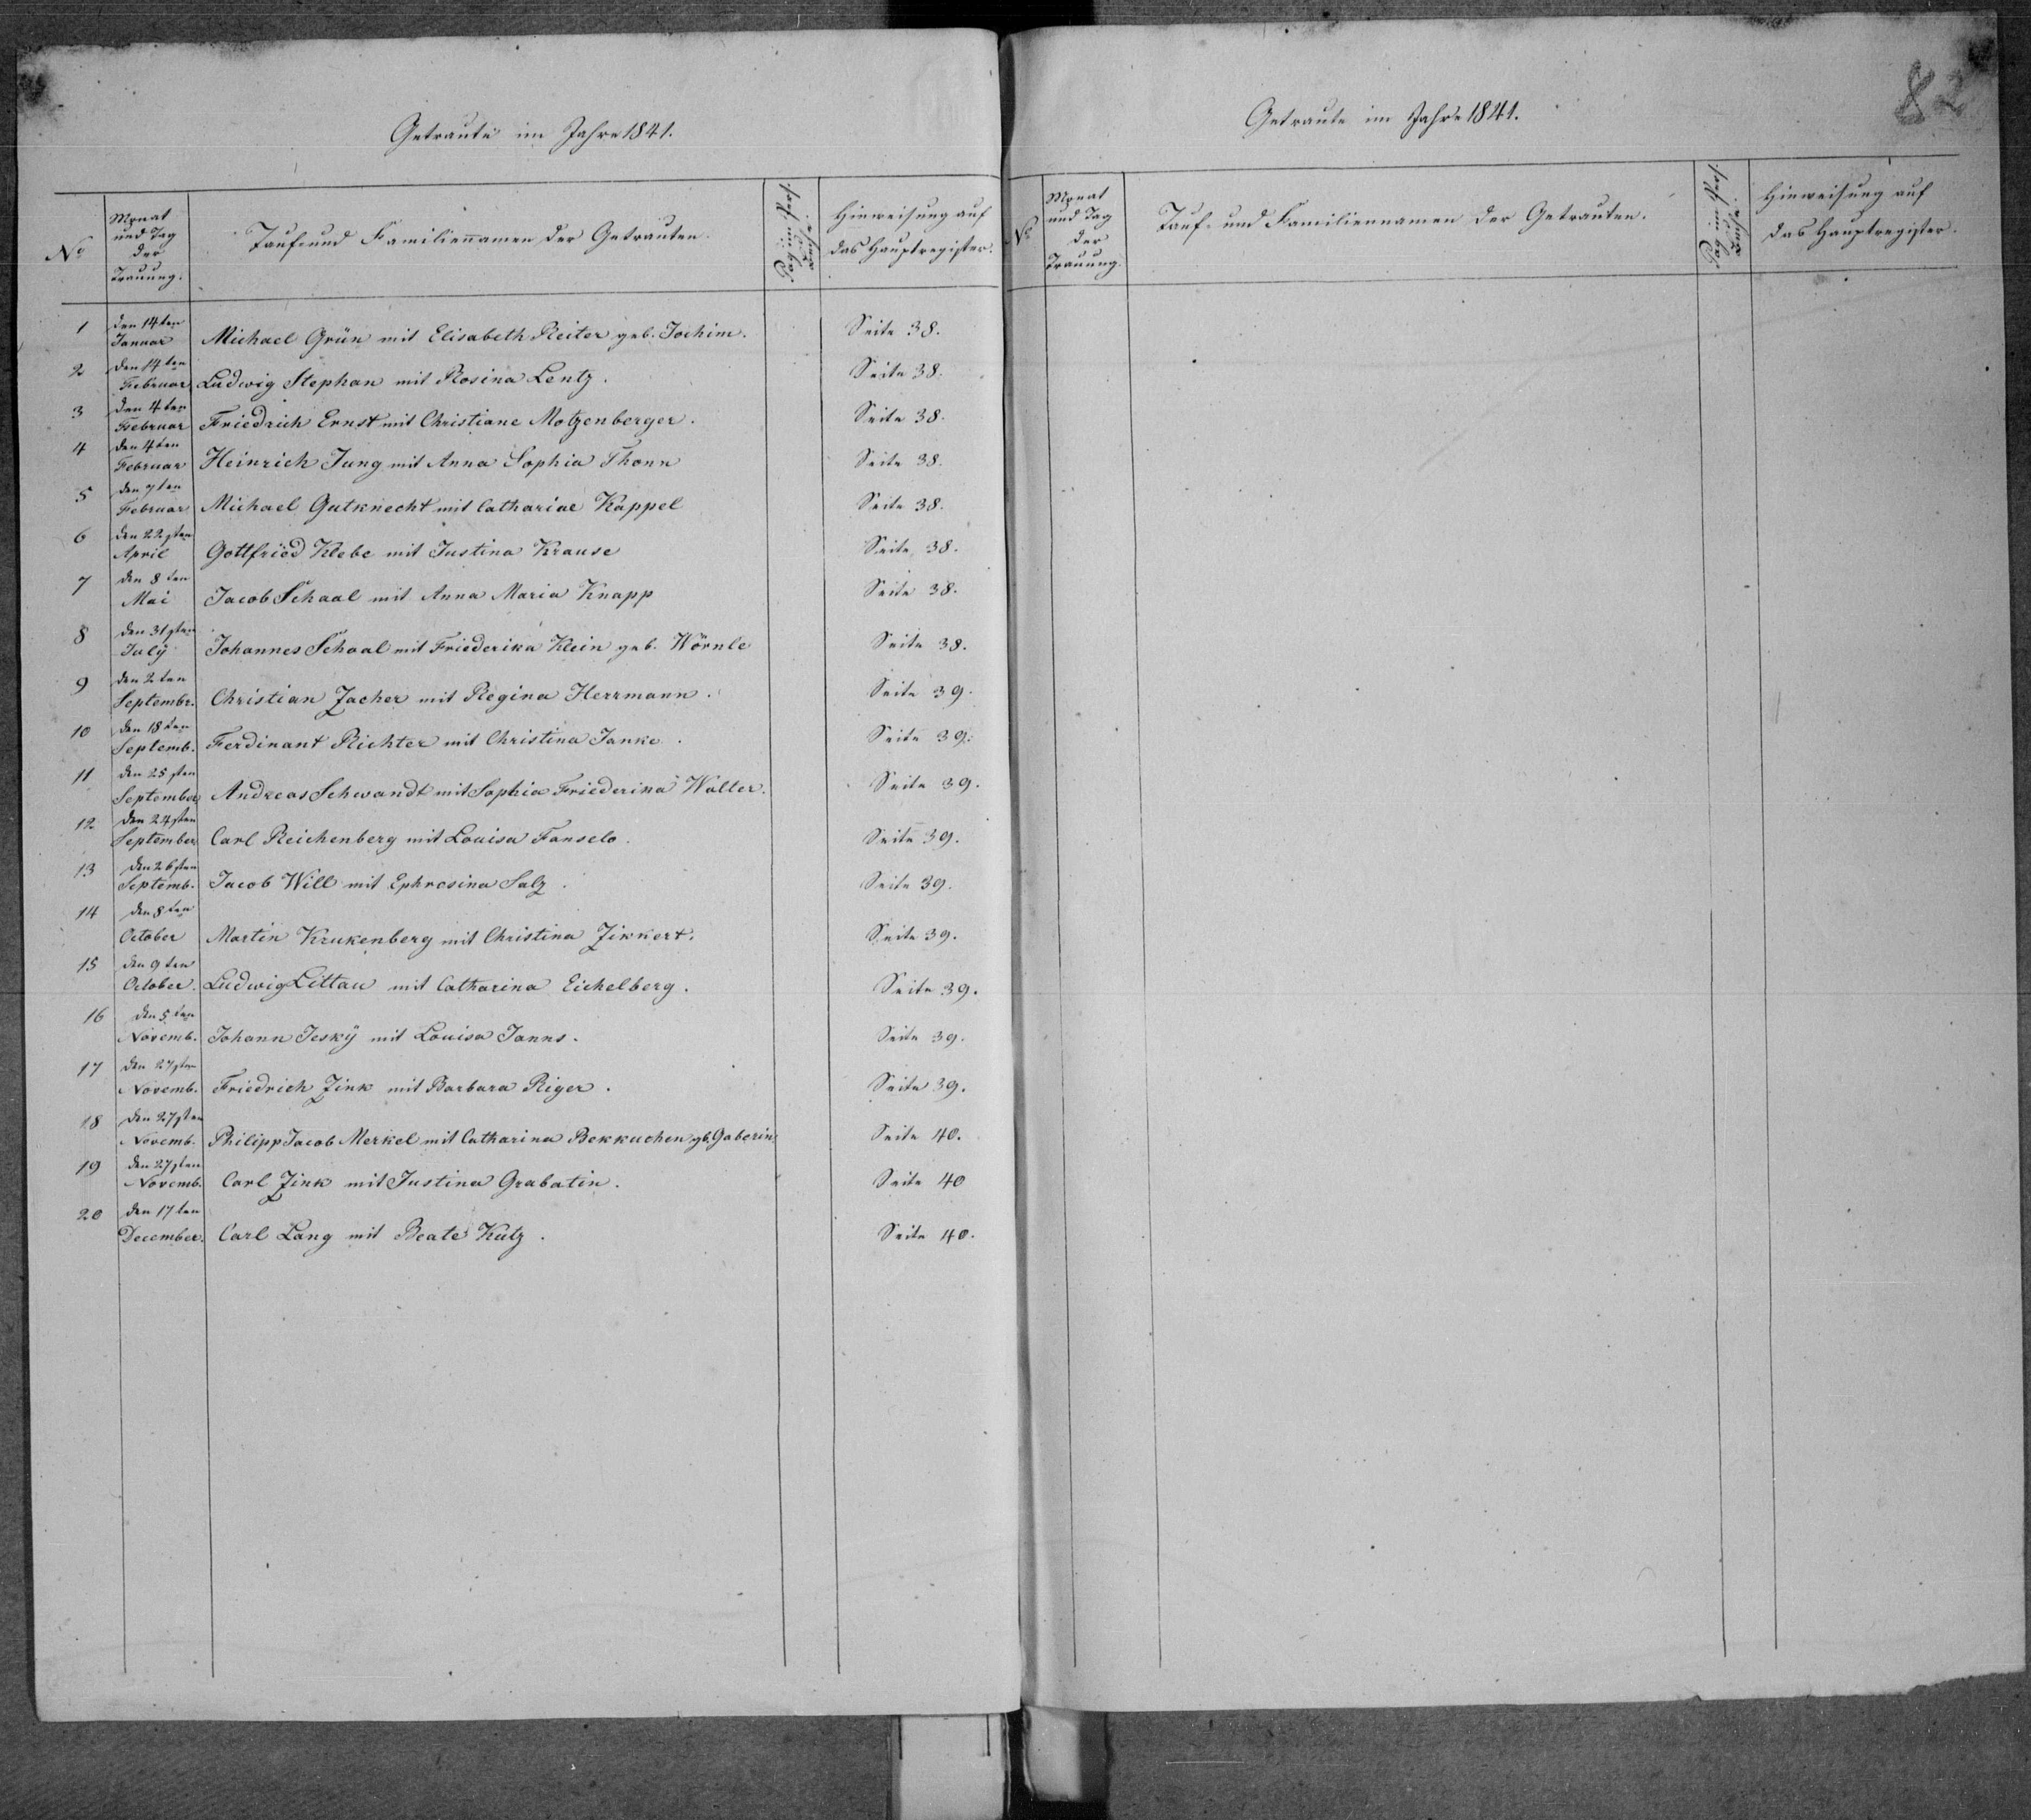 Getraute im Jahre 1841.
No
Monat und Tag der Trauung.
Tauf- und Familiennamen der Getrauten.
Pag im Pers. Buche.
Hinweisung auf das Hauptregister.
1 den 14ten Januar Michael Grün mit Elisabeth Reiter geb. Jochim. Seite 38.
2 den 14ten Februar Ludwig Stephan mit Rosina Lentz. Seite 38.
3 den 4ten Februar Friedrich Ernst mit Christiane Motzenberger. Seite 38.
4 den 4ten Februar Heinrich Jung mit Anna Sophia Thonn Seite 38.
5 den 7ten Februar Michael Gutknecht mit Cathariae Kappel Seite 38.
6 den 22sten April Gottfried Klebe mit Justina Krause Seite 38.
7 den 8ten Mai Jacob Schaal mit Anna Maria Knapp Seite 38.
8 den 31sten Julÿ Johannes Schaal mit Friederika Klein geb. Wörnle Seite 38.
9 den 2ten Septembr. Christian Zacher mit Regina Herrmann. Seite 39.
10 den 18ten Septemb. Ferdinant Richter mit Christina Janke. Seite 39.
11 den 25sten September Andreas Schwandt mit Sophia Friederina Walter. Seite 39.
12 den 24sten September Carl Reichenberg mit Louisa Fanselo. Seite 39.
13 den 26sten Septemb. Jacob Will mit Ephrosina Salz. Seite 39.
14 den 8ten October Martin Krukenberg mit Christina Zikkert. Seite 39.
15 den 9ten October. Ludwig Littau mit Catharina Eichelberg. Seite 39.
16 den 5ten Novemb. Johann Jeskÿ mit Louisa Janns. Seite 39.
17 den 27sten Novemb. Friedrich Zink mit Barbara Riger. Seite 39.
18 den 27sten Novemb. Philipp Jacob Merkel mit Catharina Bekkuchen gb. Gaberin Seite 40.
19 den 27sten Novemb. Carl Zink mit Justina Grabatin. Seite 40
20 den 17ten December. Carl Lang mit Beate Kutz. Seite 40.
82
Getraute im Jahre 1841.
No
Monat und Tag der Trauung.
Tauf- und Familiennamen der Getrauten.
Pag im Pers. Buche.
Hinweisung auf das Hauptregister.